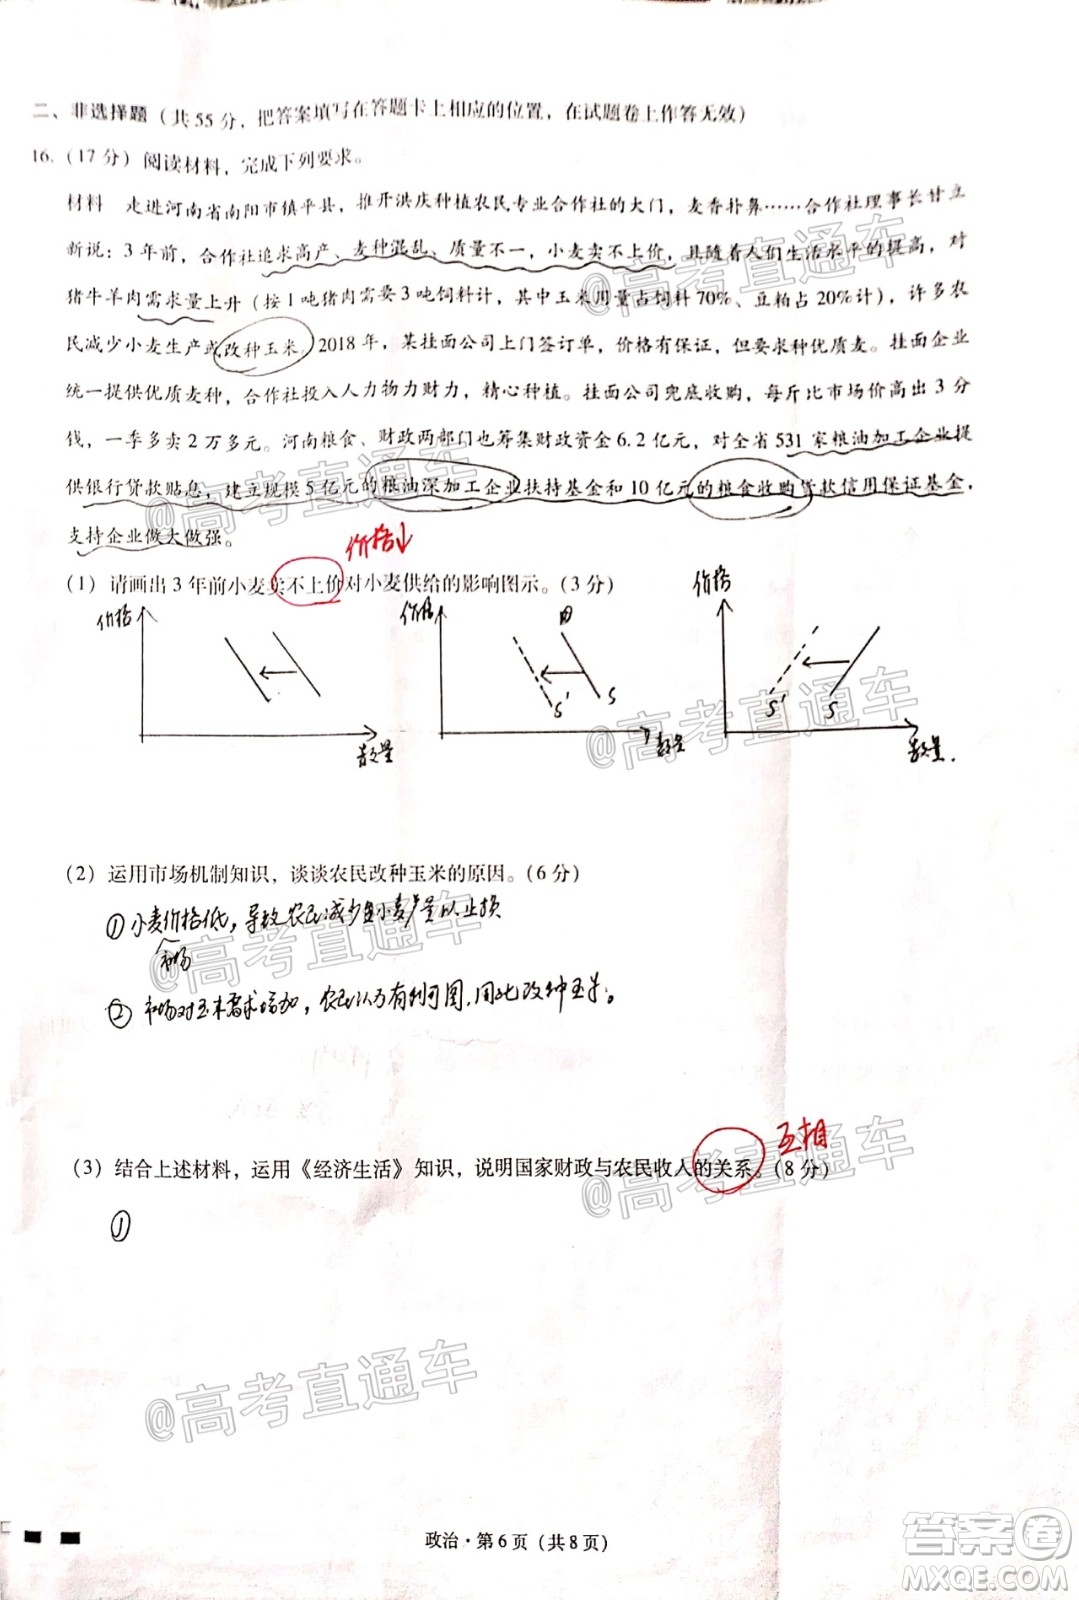 二、非选择题（共55分，把答案填写在答题卡上相应的位置，在试题卷上作答无效）
16.（17分）阅读材料，完成下列要求。
材料　走进河南省南阳市镇平县，推开洪庆种植农民专业合作社的大门，麦香扑鼻……合作社理事长甘立
新说：3年前，合作社追求高产、麦种混乱、质量不一，小麦卖不上价，且随着人们生活水平的提高，对
猪牛羊肉需求量上升（按1吨猪肉需要3吨饲料计，其中玉米用量占饲料70%、豆粕占20%计），许多农
民减少小麦生产或改种玉米。2018年，某挂面公司上门签订单，价格有保证，但要求种优质麦。挂面企业
统一提供优质麦种，合作社投入人力物力财力，精心种植。挂面公司兜底收购，每斤比市场价高出3分
钱，一季多卖2万多元。河南粮食、财政两部门也筹集财政资金6.2亿元，对全省531家粮油加工企业提
供银行贷款贴息，建立规模5亿元的粮油深加工企业扶持基金和10亿元的粮食收购贷款信用保证基金，
支持企业做大做强。
价格↓
（1）请画出3年前小麦卖不上价对小麦供给的影响图示。（3分）
价格　数量
价格　S'　S　数量
价格　S'　S　数量.
（2）运用市场机制知识，谈谈农民改种玉米的原因。（6分）
①小麦价格低，导致农民减少小麦产量以止损
市场
②市场对玉米需求增加，农民认为有利可图，因此改种玉米。
互相
（3）结合上述材料，运用《经济生活》知识，说明国家财政与农民收入的关系。（8分）
①
政治·第6页（共8页）
@高考直通车
@高考直通车
@高考直通车
@高考直通车
@高考直通车
@高考直通车
@高考直通车
答案圈
MXQE.COM